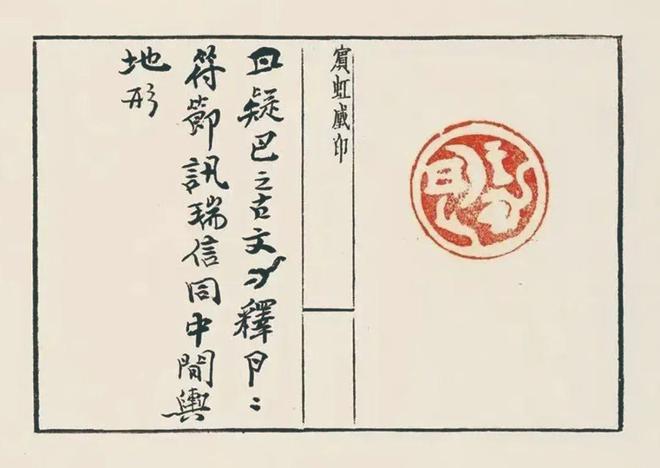 賓虹藏印
疑巴之古文釋
符節訊瑞信同中間輿
地形